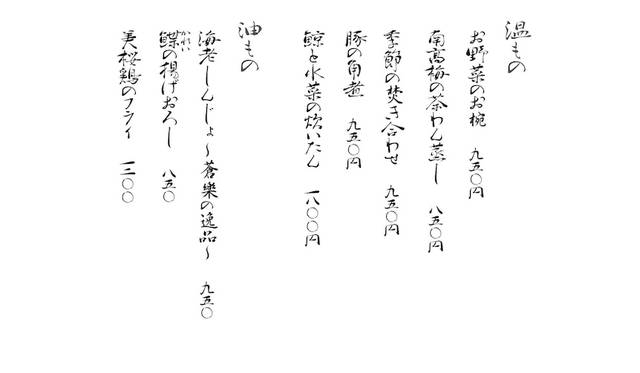 温もの
お野菜のお椀 九五〇円
南高梅の茶わん蒸し 八五〇円
季節の焚き合わせ 九五〇円
豚の角煮 九五〇円
鯨と水菜の炊いたん 一八〇〇円
油もの
海老しんじょ～蒼樂の逸品～ 九五〇
鰈の揚げおろし 八五〇
かれい
美桜鶏のフライ 一三〇〇